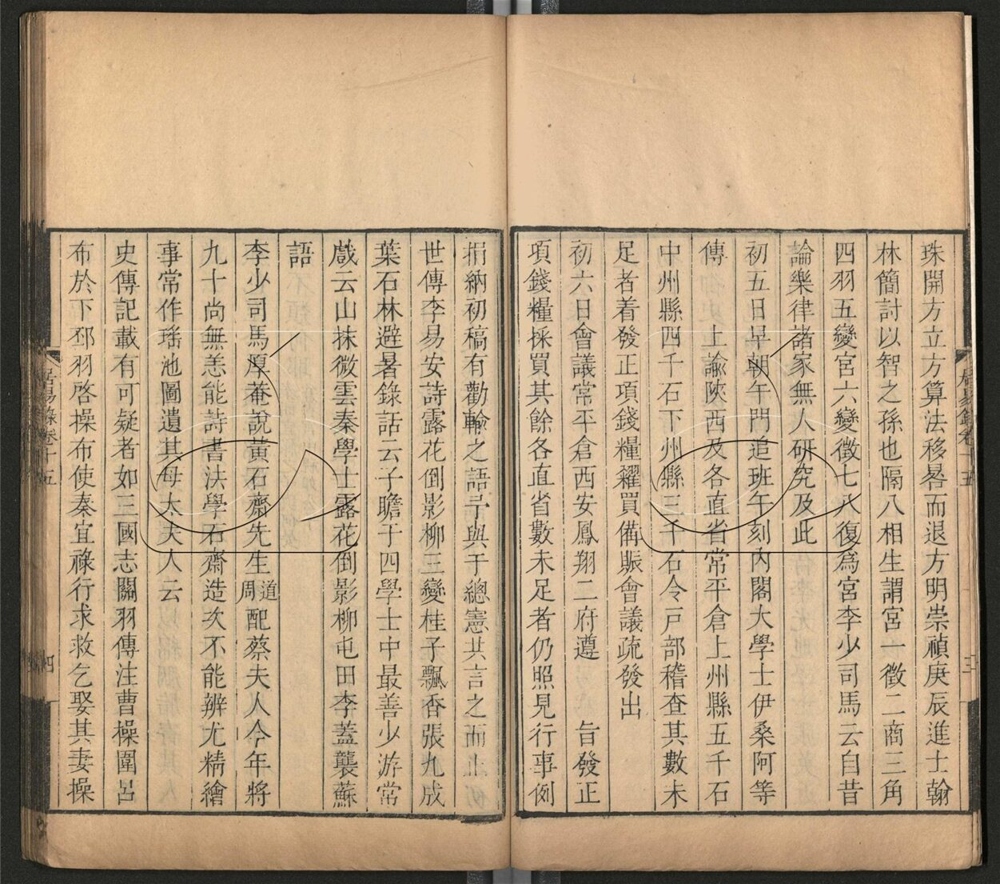 珠開方立方算法移晷而退方明崇禎庚辰進士翰
林簡討以智之孫也隔八相生謂宮一徵二商三角
四羽五變宮六變徵七八復爲宮李少司馬云自昔
論樂律諸家無人研究及此
初五日早朝午門追班午刻內閣大學士伊桑阿等
傳　上諭陝西及各直省常平倉上州縣五千石
中州縣四千石下州縣三千石令戸部稽查其數未
足者着發正項錢糧糴買備賑會議疏發出
初六日會議常平倉西安鳳翔二府遵　旨發正
項錢糧採買其餘各直省數未足者仍照見行事例
捐納初稿有勸輸之語予與于總憲共言之而止
世傳李易安詩露花倒影柳三變桂子飄香張九成
葉石林避暑錄話云子瞻于四學士中最善少游常
戲云山抹微雲秦學士露花倒影柳屯田李蓋襲蘇
語
李少司馬厚菴說黃石齋先生道周配蔡夫人今年將
九十尚無恙能詩書法學石齋造次不能辨尤精繪
事常作瑤池圖遺其母太夫人云
史傳記載有可疑者如三國志關羽傳注曹操圍呂
布於下邳羽啓操布使秦宜祿行求救乞娶其妻操
居易錄卷十五
四